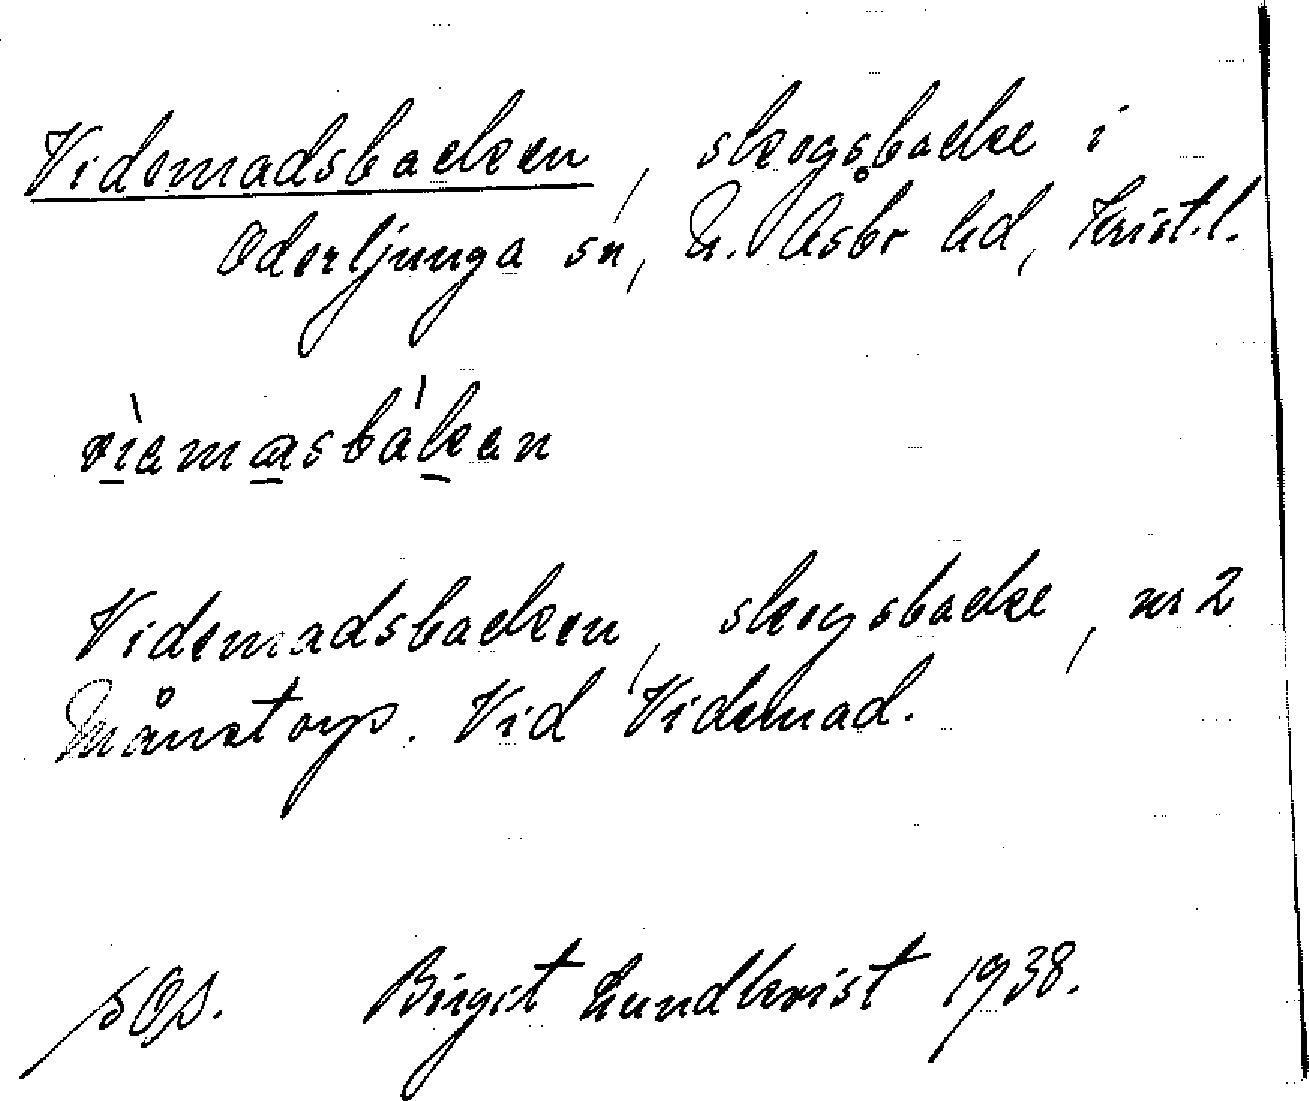 Videmadsbacken, skogsbacke i
Oderljunga sn, N. Åsbo hd, Krist.l.
viamasbakan
Videmadsbacken, skogsbacke, nr 2
Månstorp. Vid Videmad.
Birgit Lundkvist 1938.